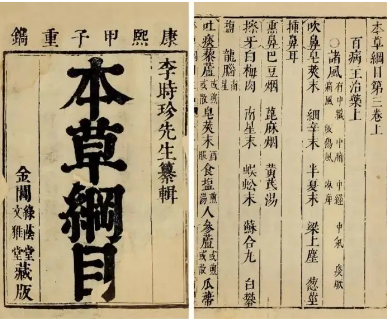 康熙甲子重鐫
李時珍先生纂輯
本草綱目
金閶
綠蔭堂
文雅堂
藏版
本草綱目第三卷上
百病主治藥上
○諸風 有中臟 中腑 中經 中氣 痰厥
痛風 破傷風 麻痺
吹鼻皂莢末 細辛末 半夏末 梁上塵 葱莖
插鼻耳
熏鼻巴豆烟 萆麻烟 黃芪湯
擦牙白梅肉 南星末 蜈蚣末 蘇合丸 白礬
鹽 龍腦南星
吐痰藜蘆或煎或散 皂莢末酒服 食鹽煎湯 人參蘆或煎或散 瓜蒂